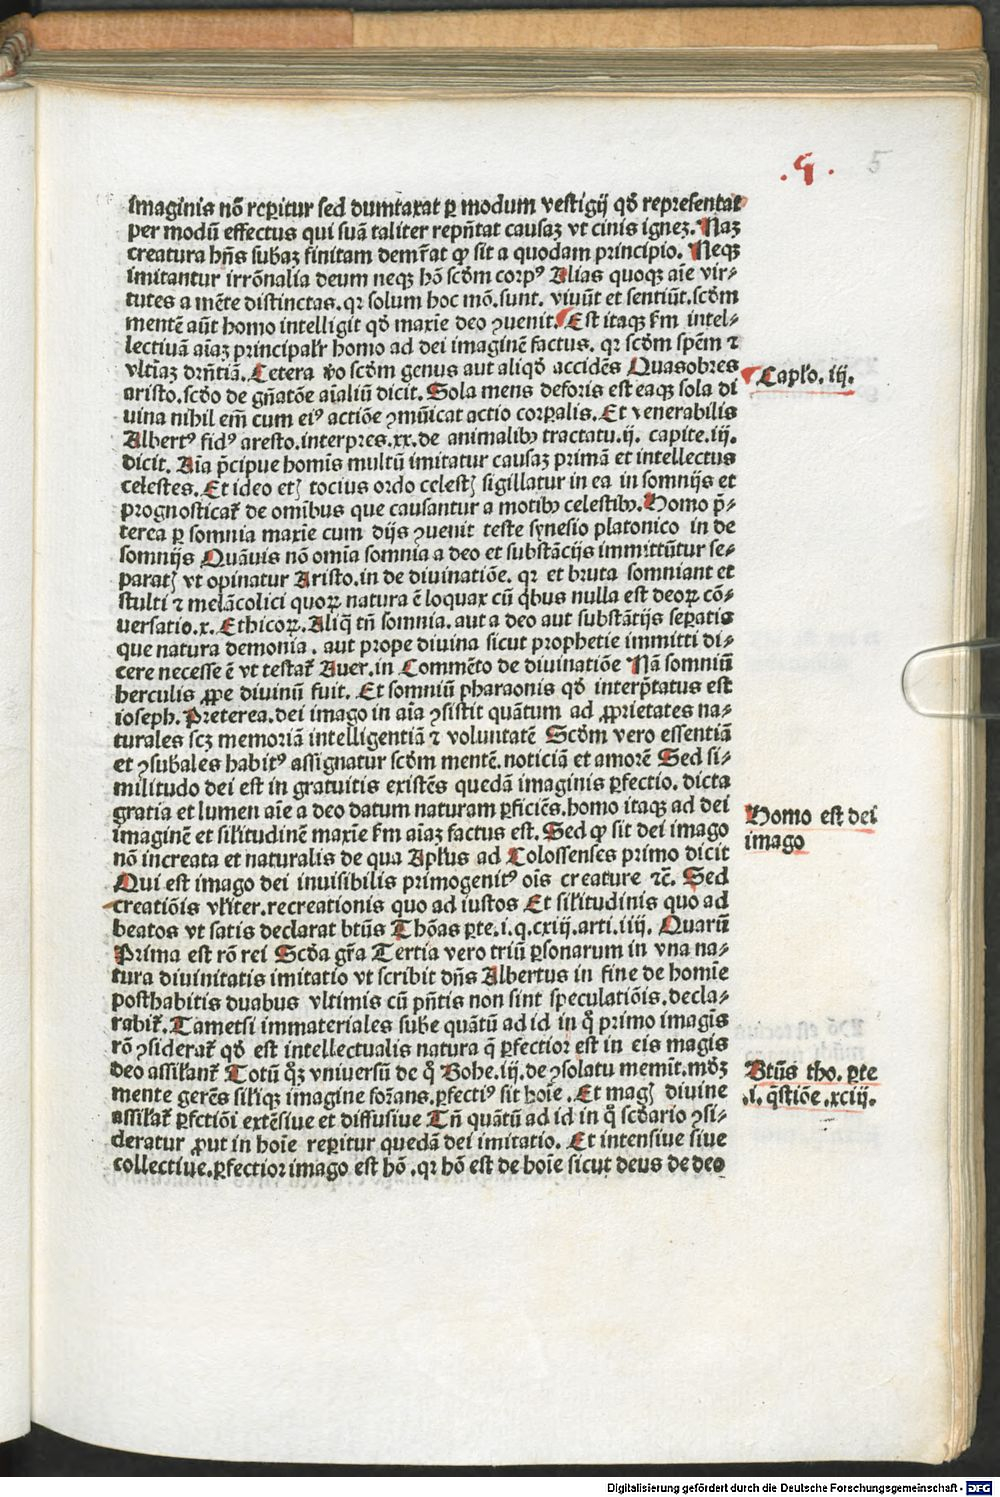 .5. 5
imaginis nō reꝑitur sed dumtaxat ꝑ modum vestigij qđ representat
per modū effectus qui suā taliter repñtat causaꝫ vt cinis igneꝫ. Naꝫ
creatura hñs subaꝫ finitam demr̄at ꝙ sit a quodam principio. Neqꝫ
imitantur irrōnalia deum neqꝫ hō scđm corpꝰ Alias quoqꝫ aīe vir⸗
tutes a mēte distinctas. qꝛ solum hoc mō. sunt. viuūt et sentiūt. scđm
mentē aūt homo intelligit qđ maxīe deo ꝯuenit. Est itaqꝫ ẜm intel⸗
lectiuā aīaꝫ principalr̄ homo ad dei imaginē factus. qꝛ scđm spēm ⁊
vltīaꝫ drñtiā. Cetera ṽo scđm genus aut aliqđ accidēs Quasobres
aristo. scđo de gñatōe aīaliū dicit. Sola mens deforis est eaqꝫ sola di
uina nihil em̄ cum eiꝰ actiōe ꝯmūicat actio corꝑalis. Et venerabilis
Albertꝰ fidꝰ aresto. interpres. xx. de animalibꝫ tractatu. ij. capite. iij.
dicit. Aīa p̄cipue homīs multū imitatur causaꝫ primā et intellectus
celestes. Et ideo etꝫ tocius ordo celestꝭ sigillatur in ea in somnijs et
prognosticat̄ de omībus que causantur a motibꝫ celestibꝫ. Homo p̄⸗
terea ꝑ somnia maxīe cum dijs ꝯuenit teste synesio platonico in de
somnijs Quāuis nō omīa somnia a deo et substācijs immittūtur se⸗
paratꝭ vt opinatur Aristo. in de diuinatiōe. qꝛ et bruta somniant et
stulti ⁊ melācolici quoꝝ natura ē loquax cū qͥbus nulla est deoꝝ cō⸗
versatio. x. Ethicoꝝ. Aliq̄ tñ somnia. aut a deo aut substātijs seꝑatis
que natura demonia. aut prope diuina sicut prophetie immitti di⸗
cere necesse ē vt testat̄ Auer. in Commēto de diuinatiōe Nā somniū
herculis ꝓpe diuinū fuit. Et somniū pharaonis qđ interp̄tatus est
ioseph. Preterea. dei imago in aīa ꝯsistit quātum ad ꝓprietates na⸗
turales scꝫ memoriā intelligentiā ⁊ voluntatē Scđm vero essentiā
et ꝯsubales habitꝰ assignatur scđm mentē. noticiā et amorē Sed si⸗
militudo dei est in gratuitis existēs quedā imaginis ꝑfectio. dicta
gratia et lumen aīe a deo datum naturam ꝑficiēs. homo itaqꝫ ad dei
imaginē et silitudinē maxīe ẜm aīaꝫ factus est. Sed ꝙ sit dei imago
nō increata et naturalis de qua Aplus ad Colossenses primo dicit
Qui est imago dei inuisibilis primogenitꝰ oīs creature ⁊c̄. Sed
creatiōis vliter. recreationis quo ad iustos Et silitudinis quo ad
beatos vt satis declarat btūs Thōas ꝑte. i. q. cxiij. arti. iiij. Quarū
Prima est rō rei Scđa gr̄a Tertia vero triū ꝑsonarum in vna na⸗
tura diuinitatis imitatio vt scribit dñs Albertus in fine de homīe
posthabitis duabus vltimis cū pñtis non sint speculatiōis. decla⸗
rabit̄. Tametsi immateriales sube quātū ad id in qͦ primo imagīs
rō ꝯsiderat̄ qđ est intellectualis natura q̄ ꝑfectior est in eis magis
deo assilant̄ Totū qͦꝫ vniuersū de qͦ Bohe. iij. de ꝯsolatu memīt. mōꝫ
mente gerēs siliqꝫ imagine forans. ꝑfectiꝰ sit hoīe. Et magꝭ diuine
assilat̄ ꝑfctiōi extēsiue et diffusiue Tñ quātū ad id in qͦ scđario ꝯsi⸗
deratur ꝓut in hoīe reꝑitur quedā dei imitatio. Et intensiue siue
collectiue. ꝑfectior imago est hō. qꝛ hō est de hoīe sicut deus de deo
Caplo. iij.
Homo est dei
imago
Btūs tho. ꝑte
.i. q̄stiōe. xciij.
Digitalisierung gefördert durch die Deutsche Forschungsgemeinschaft - DFG